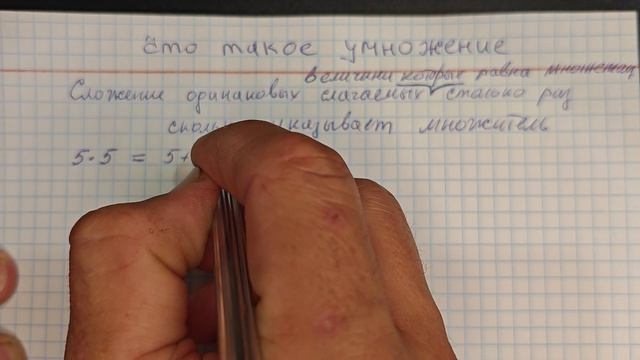 Что такое умножение
величина которые равна множетел
Сложение одинаковых слагаемых столько раз
сколь указывает множитель
5·5 = 5+